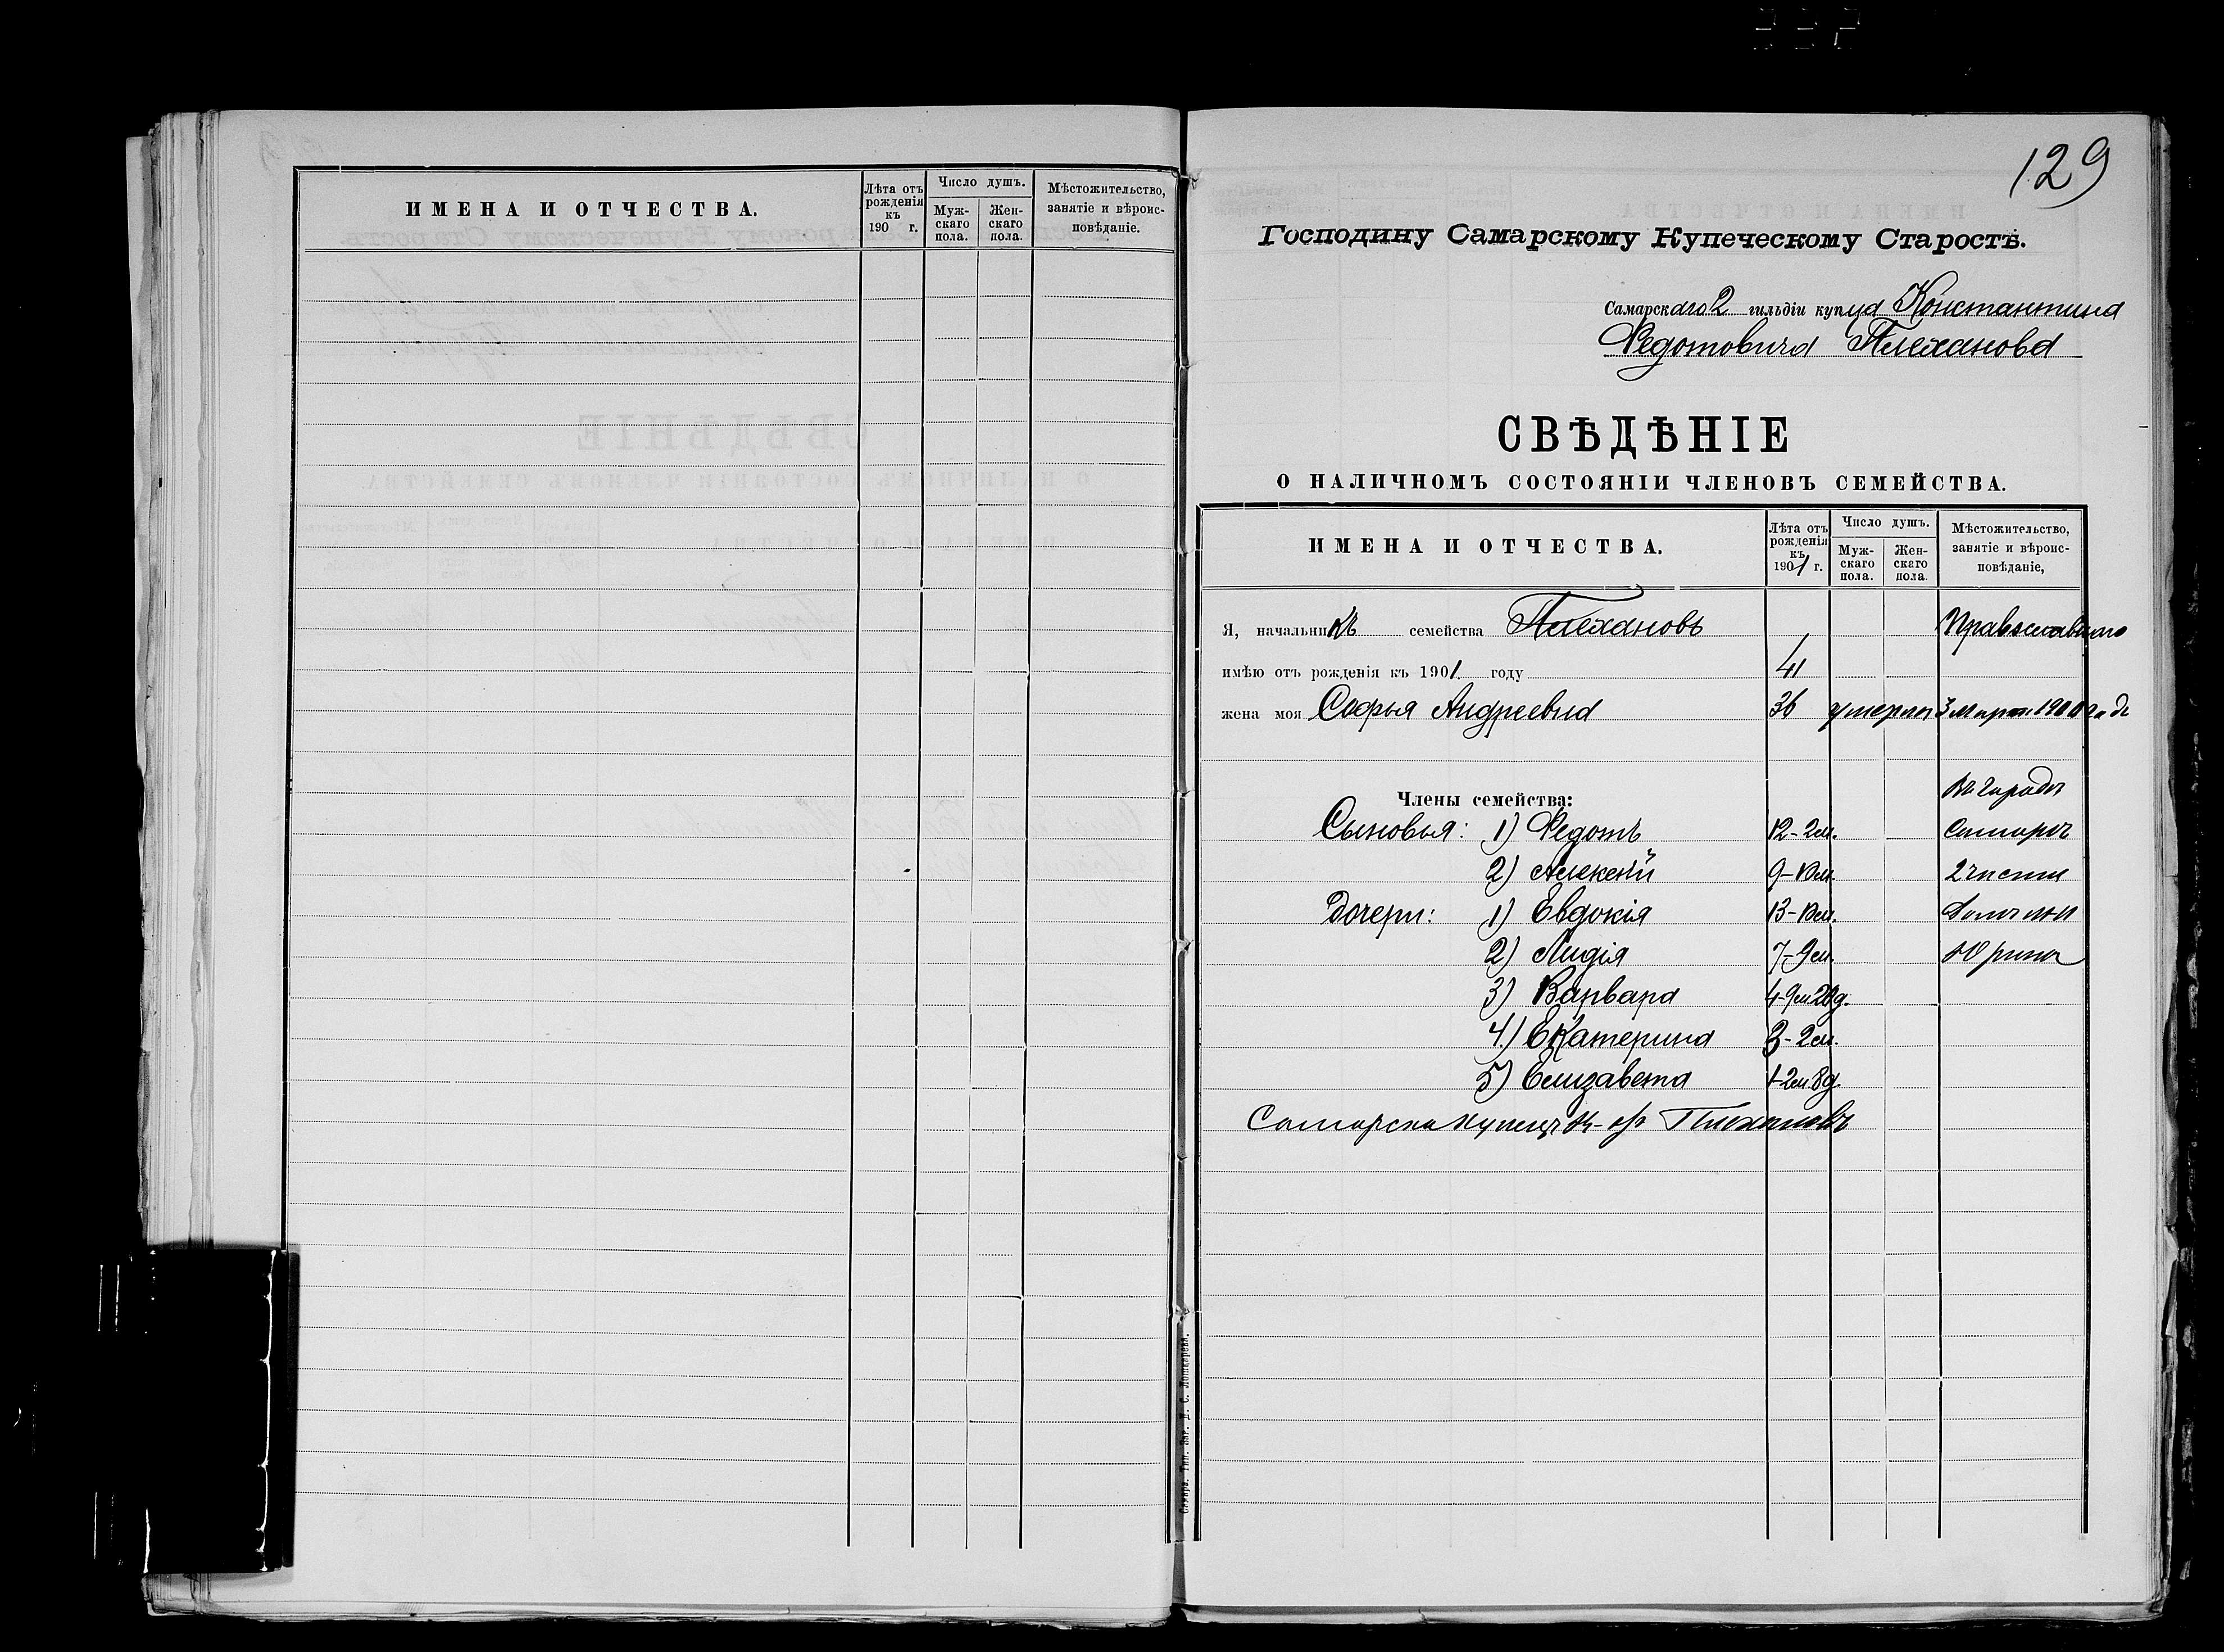 ИМЕНА И ОТЧЕСТВА.
Лѣта отъ рожденія къ 190 г.
Число душъ.
Мужскаго пола.
Женскаго пола.
Мѣстожительство, занятіе и вѣроисповѣданіе.
129
Господину Самарскому Купеческому Старостѣ.
Самарскаго 2 гильдіи купца Константина
Федотовича Плеханова
СВѢДѢНІЕ
О НАЛИЧНОМЪ СОСТОЯНІИ ЧЛЕНОВЪ СЕМЕЙСТВА.
ИМЕНА И ОТЧЕСТВА.
Лѣта отъ рожденія къ 1901 г.
Число душъ.
Мужскаго пола.
Женскаго пола.
Мѣстожительство, занятіе и вѣроисповѣданіе,
Я, начальникъ семейства Плехановъ Православнаго
имѣю отъ рожденія къ 1901 году 41
жена моя Софья Андреевна 36 умерла 3 марта 1900 года
Члены семейства: Въ городѣ
Сыновья: 1) Федотъ 12-2м. Самарѣ
2) Алексѣй 9-10м. 2 части
Дочери: 1) Евдокія 13-10м.
2) Лидія 7-9м.
3) Варвара 4-9м 20д.
4) Екатерина 3-2м.
5) Елизавета 1-2м.8д.
Самарск купецъ Плехановъ
Самара. Тип. Заг. И. С. Лошкарева.